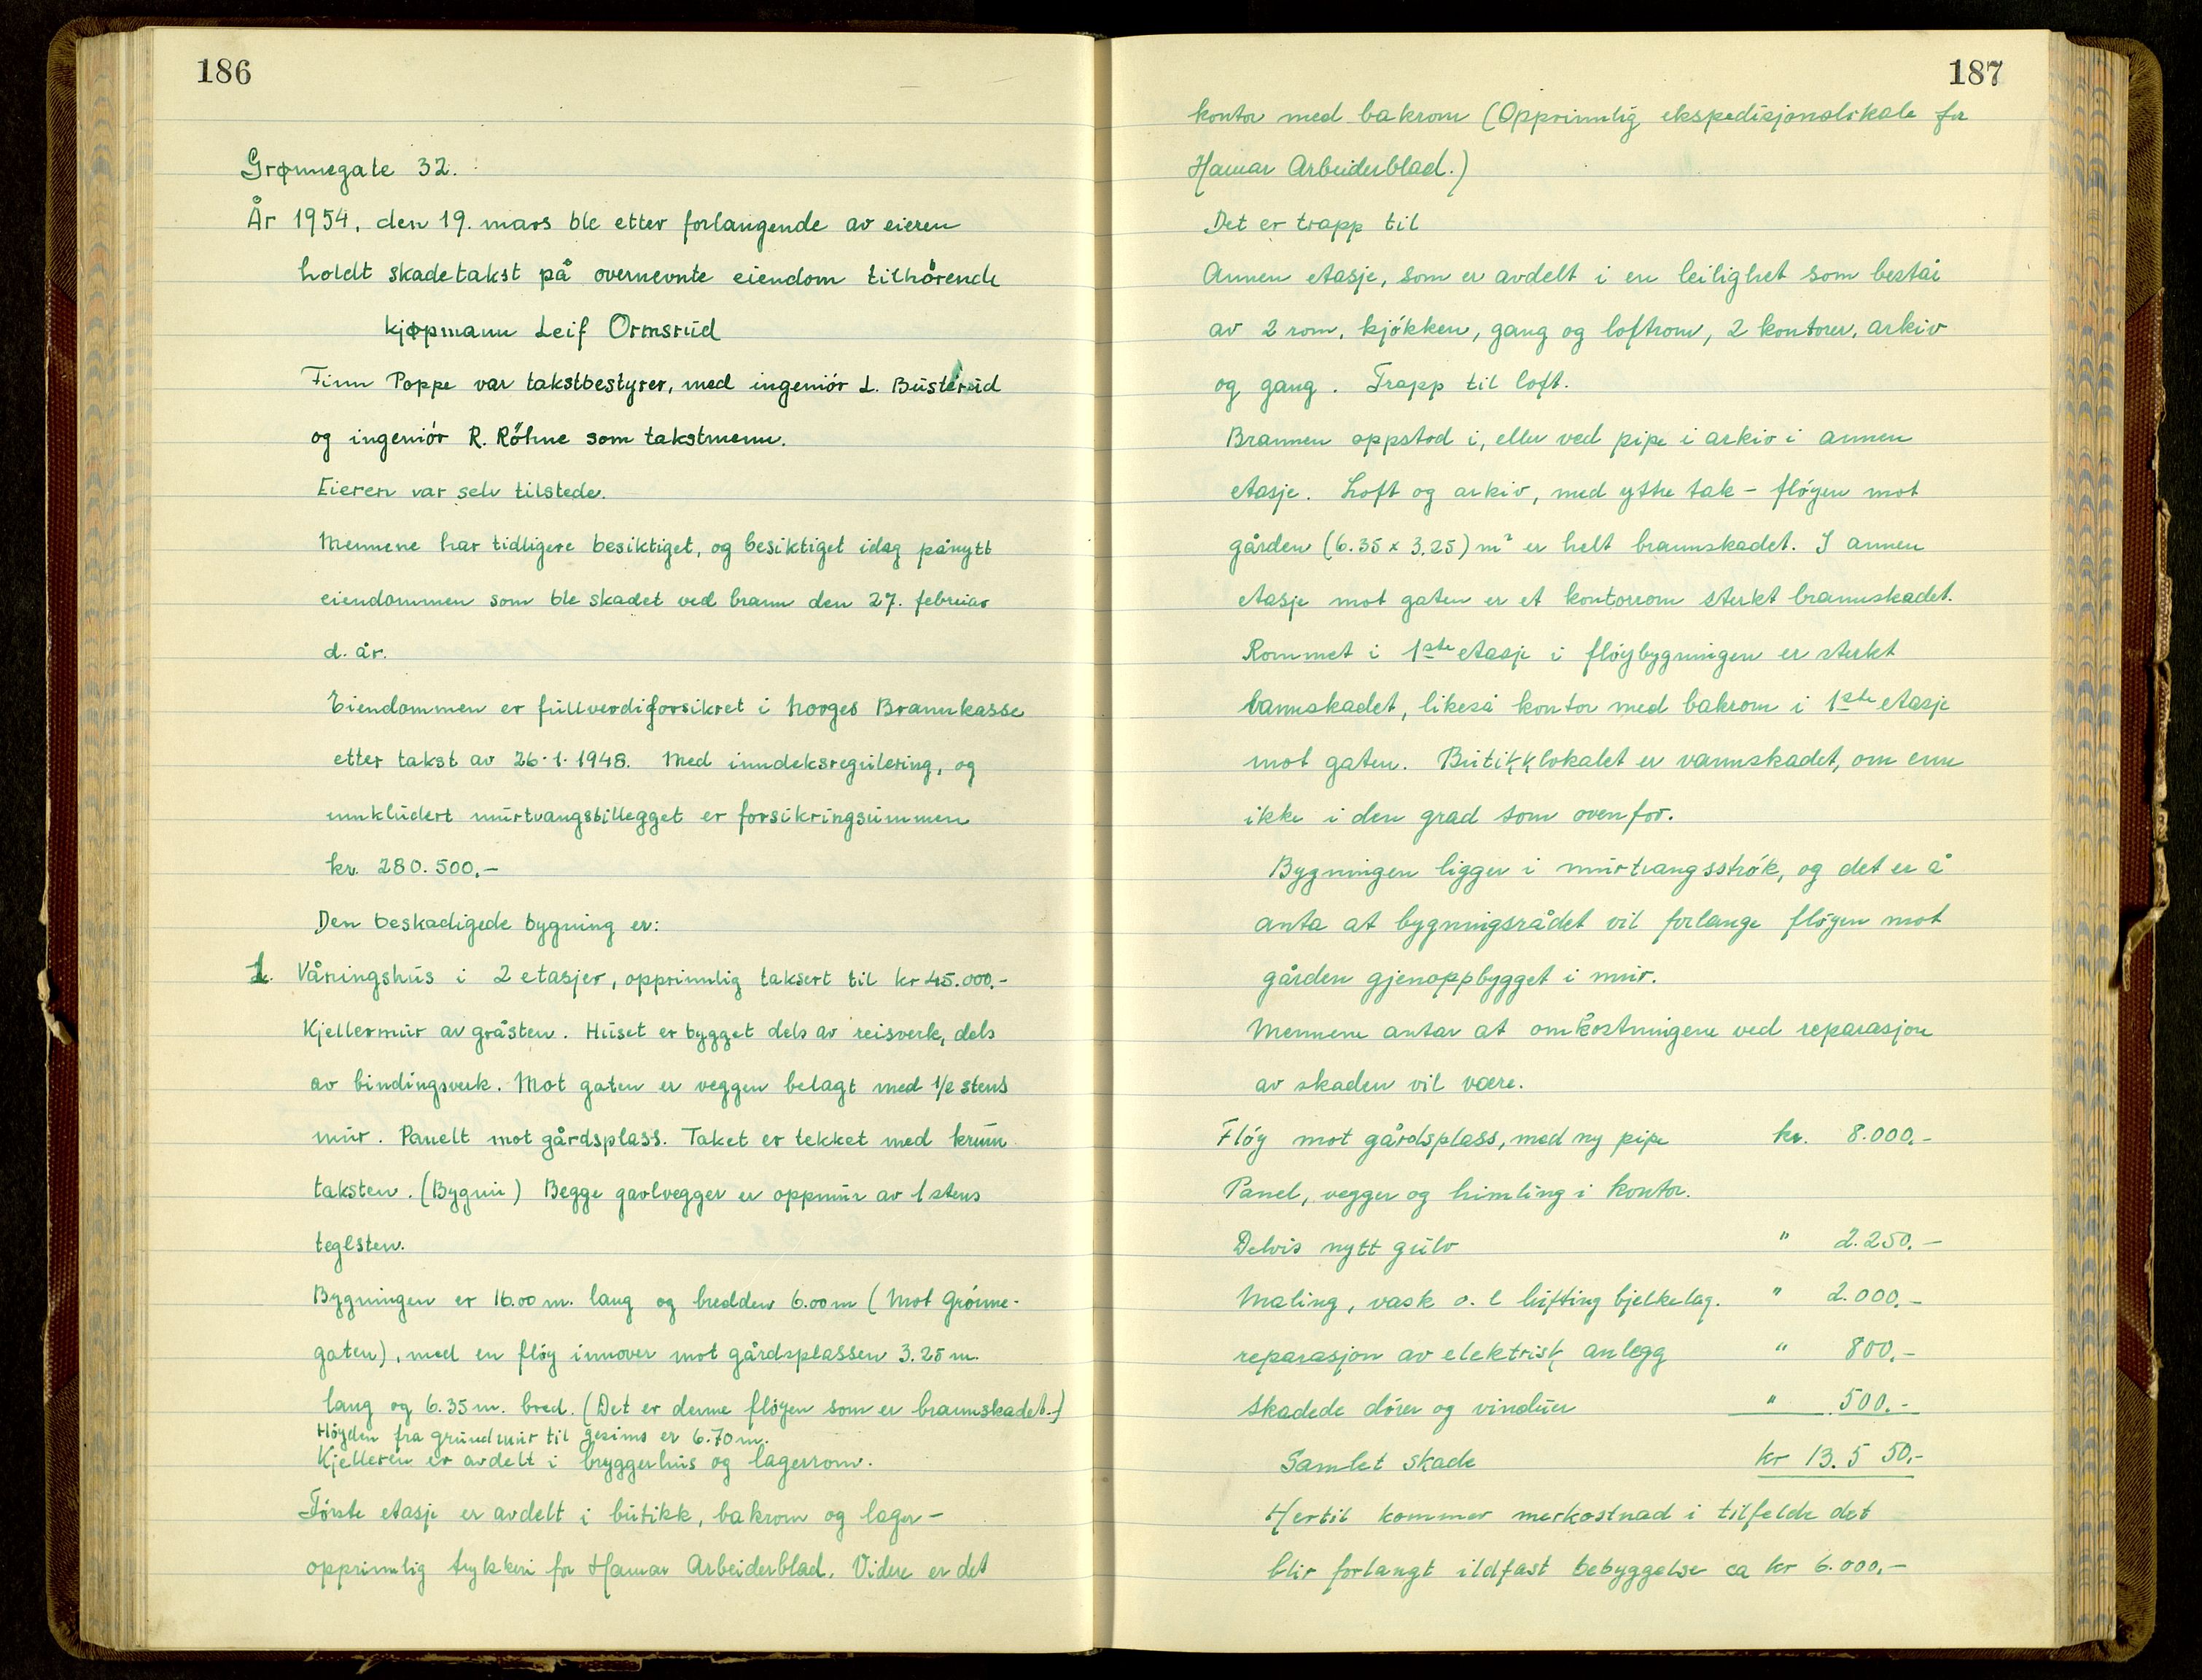 186
Grønnegate 32.
År 1954, den 19. mars ble etter forlangende av eieren
holdt skadetakst på overnevnte eiendom tilhørende
kjøpmann Leif Ormsrud
Finn Poppe var takstbestyrer, med ingeniör L. Busterud
og ingeniör R. Röhne som takstmenn.
Eieren var selv tilstede.
Mennene har tidligere besiktiget, og besiktiget idag pånytt
eiendommen som ble skadet ved brann den 27. februar
d. år.
Eiendommen er fullverdiforsikret i Norges Brannkasse
etter takst av 26.1.1948. Med inndeksregulering, og
innkludert murtvangstillegget er forsikringsummen
kr. 280.500,-
Den beskadigede bygning er:
1. Våningshus i 2 etasjer, opprinnlig taksert til kr 45.000,-
Kjellermur av gråsten. Huset er bygget dels av reisverk, dels
av bindingsverk. Mot gaten er veggen belagt med 1/2 stens
mur. Panelt mot gårdsplass. Taket er tekket med krum
taksten. (Bygnii) Begge gavlvegger er oppmur av 1 stens
teglsten.
Bygningen er 16.00 m. lang og bredden 6.00 m (Mot Grönne-
gaten), med en flöy innover mot gårdsplassen 3.25 m.
lang og 6.35 m. bred. (Det er denne flöyen som er brannskadet.)
Höyden fra grundmur til gesims er 6.70 m.
Kjelleren er avdelt i bryggerhus og lagerrom.
Förste etasje er avdelt i butikk, bakrom og lager-
opprinnlig trykkeri for Hamar Arbeiderblad. Videre er det
187
kontor med bakrom (Opprinnlig ekspedisjonslokale for
Hamar Arbeiderblad.)
Det er trapp til
Annen etasje, som er avdelt i en leilighet som består
av 2 rom, kjökken, gang og loftrom, 2 kontorer, arkiv
og gang. Trapp til loft.
Brannen oppstod i, eller ved pipe i arkiv i annen
etasje. Loft og arkiv, med yttre tak - flöyen mot
gården (6.35 x 3.25) m² er helt brannskadet. I annen
etasje mot gaten er et kontorrom sterkt brannskadet.
Rommet i 1ste etasje i flöybygningen er sterkt
vannskadet, likeså kontor med bakrom i 1ste etasje
mot gaten. Butikklokalet er vannskadet, om enn
ikke i den grad som ovenfor.
Bygningen ligger i murtvangsströk, og det er å
anta at bygningsrådet vil forlange flöyen mot
gården gjenoppbygget i mur.
Mennene antar at omkostningene ved reparasjon
av skaden vil være.
Flöy mot gårdsplass, med ny pipe kr. 8.000,-
Panel, vegger og himling i kontor.
Delvis nytt gulv " 2.250,-
Maling, vask o. l lufting bjelkelag. " 2.000,-
reparasjon av elektrisk anlegg " 800,-
skadede dörer og vinduer " 500,-
Samlet skade kr 13.550,-
Hertil kommer merkostnad i tilfelde det
blir forlangt ildfast bebyggelse ca kr 6.000,-